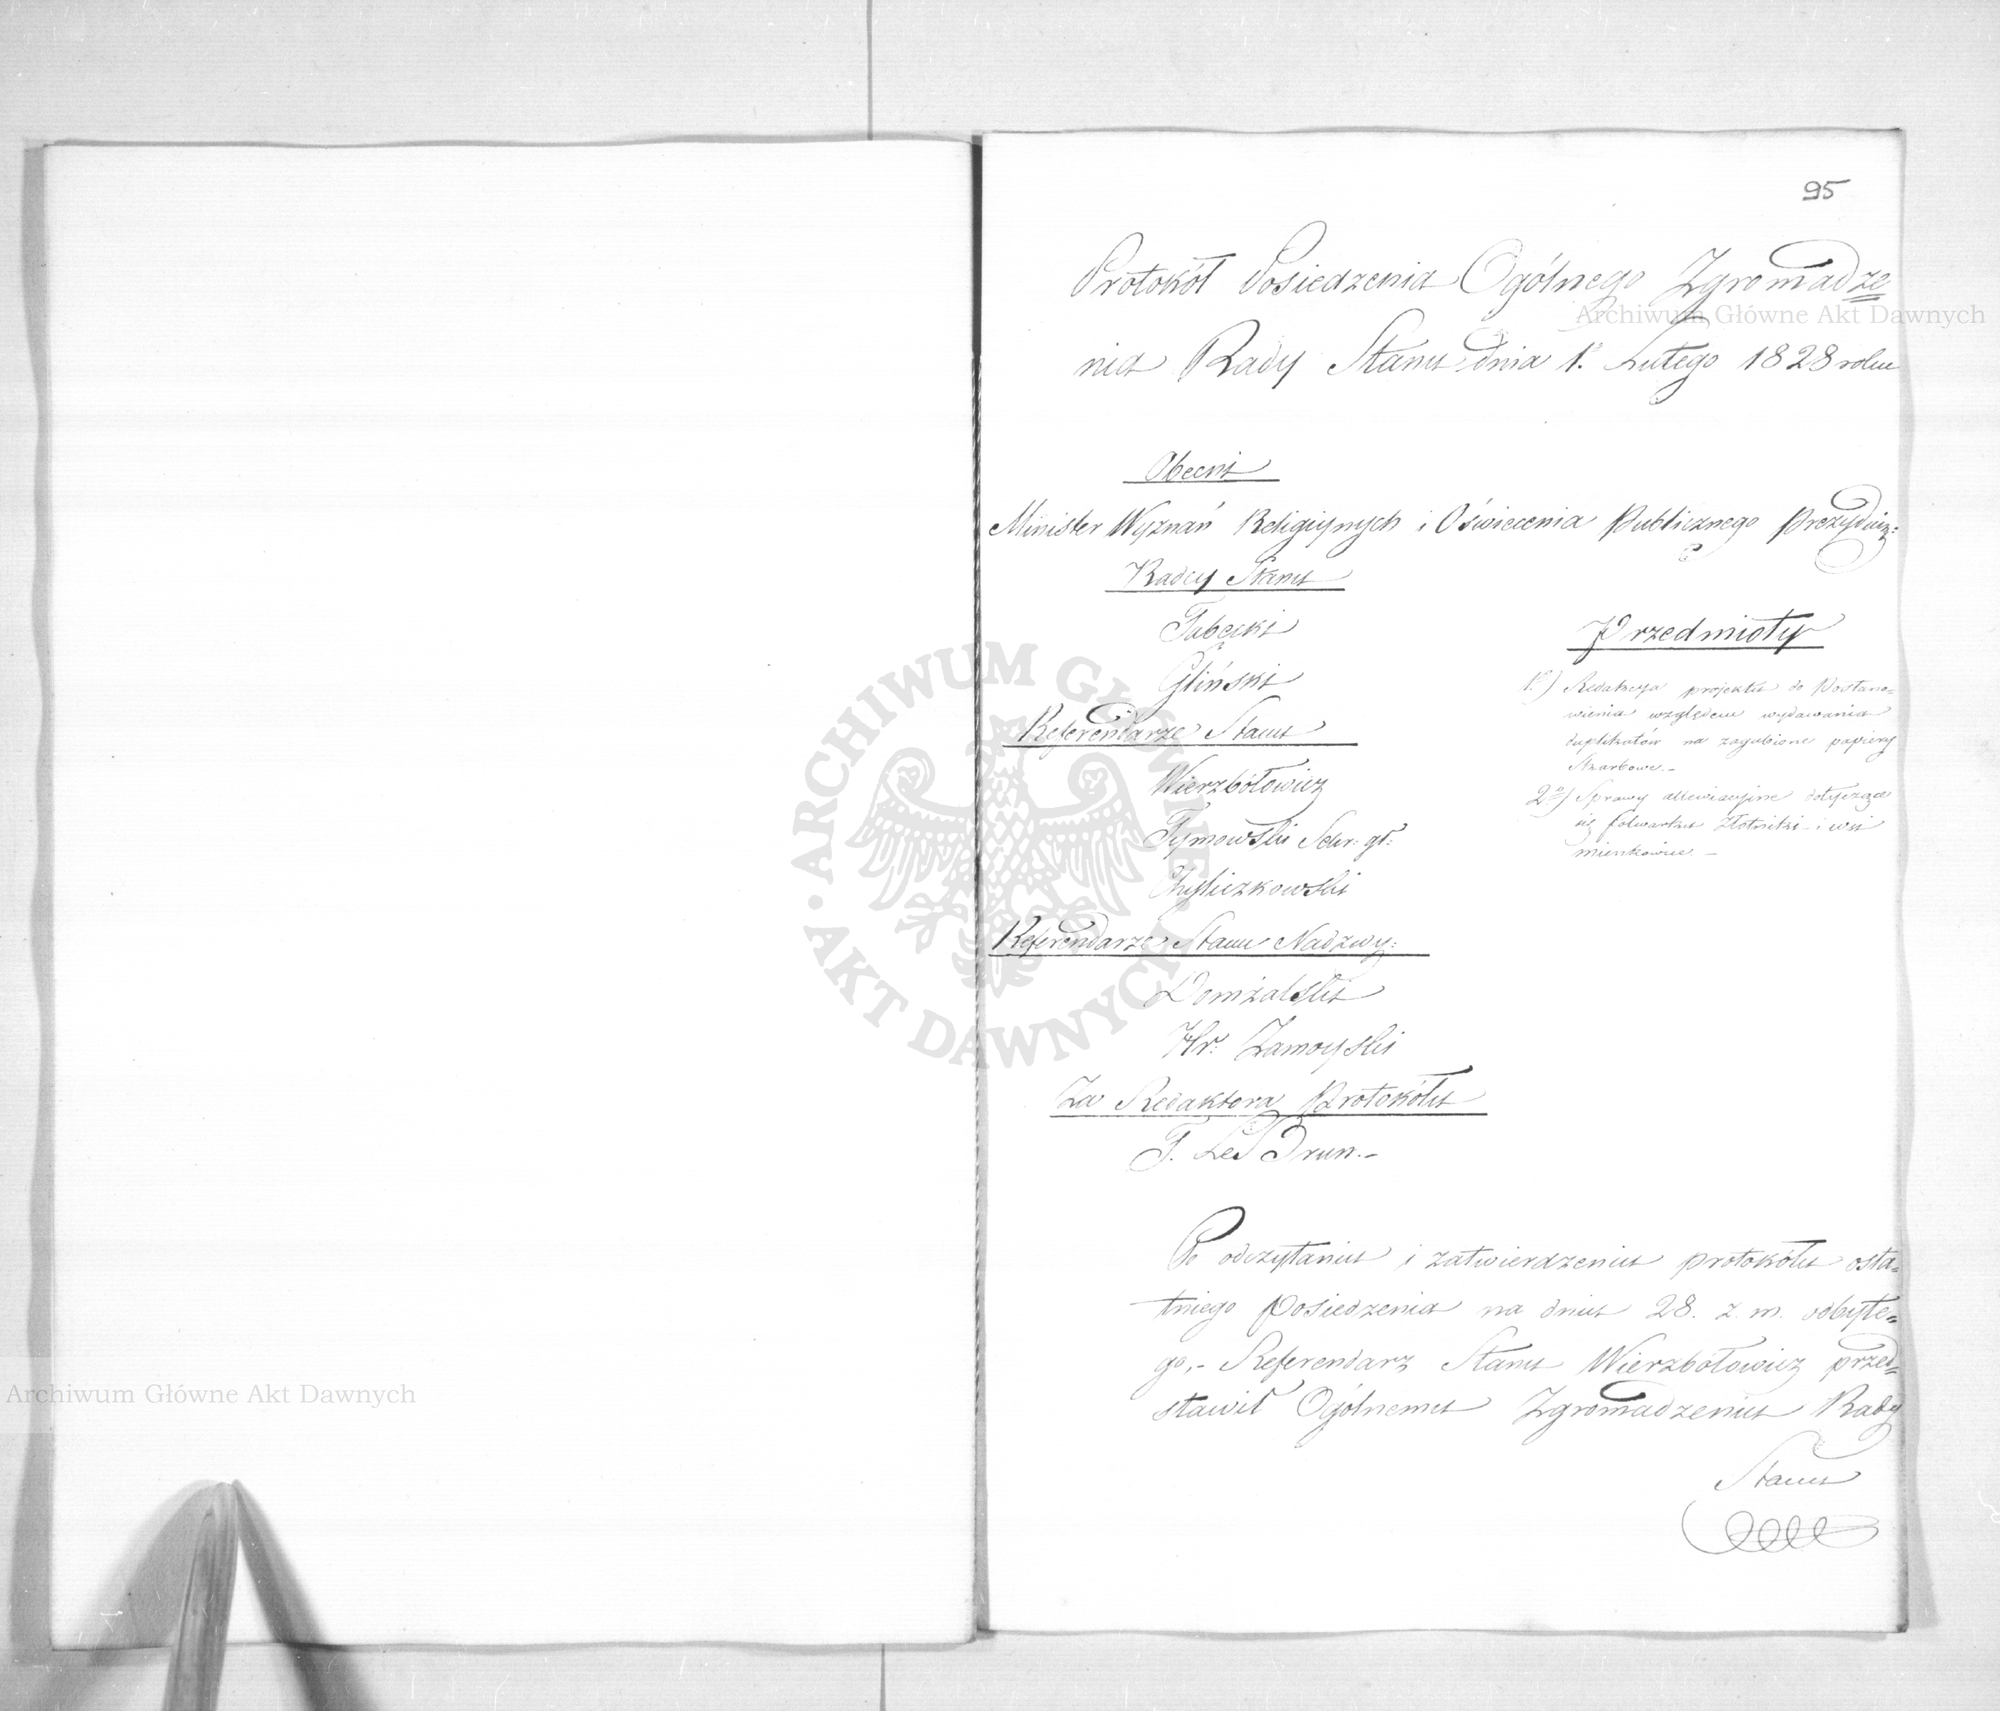 95
Protokół Posiedzenia Ogólnego Zgromadze
nia Rady Stanu dnia 1º Lutego 1828 roku
Obecni
Minister Wyznań Religijnych i Oświecenia Publicznego Prezyduią:
Radcy Stanu
Tabęcki
Gliński
Referendarze Stanu
Wierzbołowicz
Tymowski Sekr: gł:
Referendarze Stanu Nadzwy:
Domżalski
Hr: Zamoyski
Za Redaktora Protokółu
F. Le Brun.–
Przedmioty
1º) Redakcya projektu do Postano-
wienia względem wydawania
duplikatów na zagubione papiery
Skarbowe.–
2º) Sprawy allewiacyjne dotyczące
się folwarku Złotniki i wsi
Mienkowice.–
Po odczytaniu i zatwierdzeniu protokółu osta-
tniego posiedzenia na dniu 28. z. m. odbyte-
go,– Referendarz Stanu Wierzbołowicz przed-
stawił Ogólnemu Zgromadzeniu Rady
Stanu
Archiwum Główne Akt Dawnych
ARCHIWUM GŁÓWNE AKT DAWNYCH
Archiwum Główne Akt Dawnych